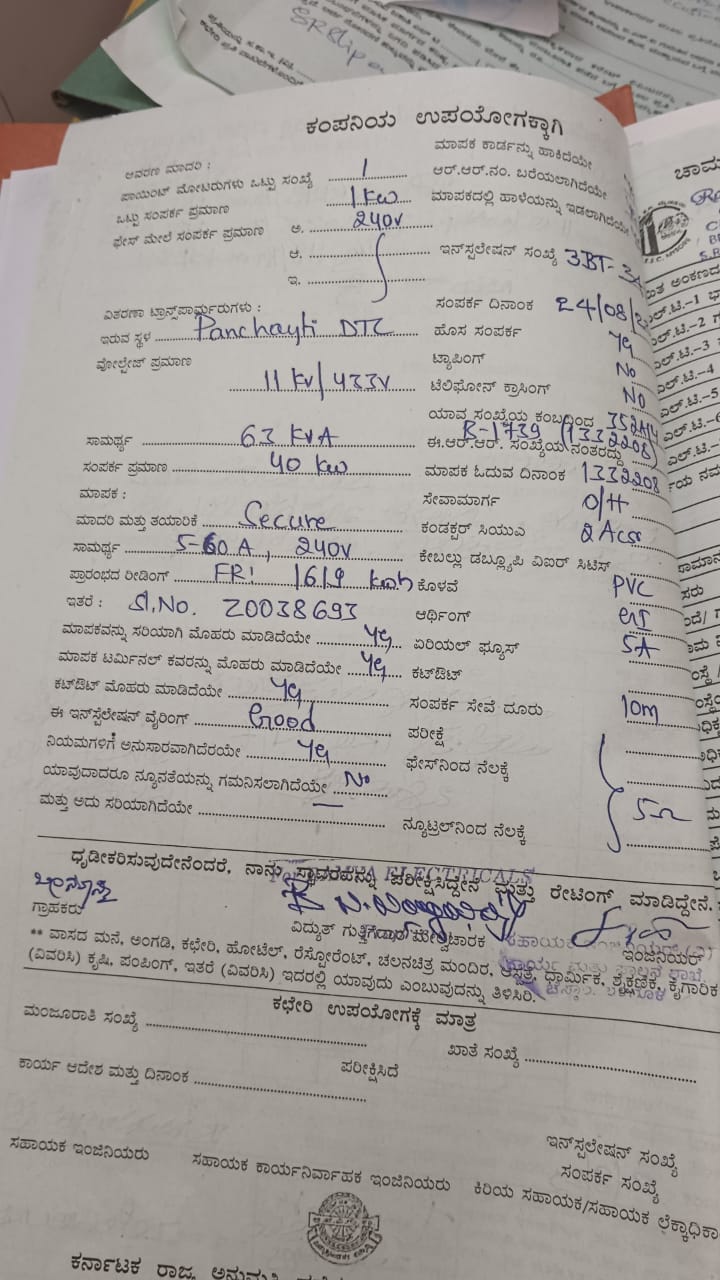 SR Slip
ಕಂಪನಿಯ ಉಪಯೋಗಕ್ಕಾಗಿ
ಆವರಣ ಮಾದರಿ :
ಮಾಪಕ ಕಾರ್ಡನ್ನು ಹಾಕಿದೆಯೇ
ಪಾಯಿಂಟ್ ಮೋಟರುಗಳು ಒಟ್ಟು ಸಂಖ್ಯೆ 1
ಆರ್.ಆರ್.ನಂ. ಬರೆಯಲಾಗಿದೆಯೇ
ಒಟ್ಟು ಸಂಪರ್ಕ ಪ್ರಮಾಣ 1 Kw
ಮಾಪಕದಲ್ಲಿ ಹಾಳೆಯನ್ನು ಇಡಲಾಗಿದೆಯೇ
ಫೇಸ್ ಮೇಲೆ ಸಂಪರ್ಕ ಪ್ರಮಾಣ ಅ. 240v
ಆ.
ಇನ್‌ಸ್ಪಲೇಷನ್ ಸಂಖ್ಯೆ 3BT-
ಇ.
ವಿತರಣಾ ಟ್ರಾನ್ಸ್‌ಪಾರ್ಮರುಗಳು :
ಸಂಪರ್ಕ ದಿನಾಂಕ 24/08/
ಇರುವ ಸ್ಥಳ Panchayti DTC
ಹೊಸ ಸಂಪರ್ಕ
ವೋಲ್ಟೇಜ್ ಪ್ರಮಾಣ
ಟ್ಯಾಪಿಂಗ್ No
11 Kv/433v
ಟೆಲಿಫೋನ್ ಕ್ರಾಸಿಂಗ್ No
ಯಾವ ಸಂಖ್ಯೆಯ ಕಂಬದಿಂದ
ಸಾಮರ್ಥ್ಯ 63 KVA
R-1739 (1332208)
ಈ.ಆರ್.ಆರ್. ಸಂಖ್ಯೆಯ ನಂತರದ್ದು
ಸಂಪರ್ಕ ಪ್ರಮಾಣ 40 Kw
ಮಾಪಕ ಓದುವ ದಿನಾಂಕ 1332208
ಮಾಪಕ :
ಸೇವಾಮಾರ್ಗ O/H
ಮಾದರಿ ಮತ್ತು ತಯಾರಿಕೆ Secure
ಕಂಡಕ್ಟರ್ ಸಿಯುಎ
ಸಾಮರ್ಥ್ಯ 5-60 A, 240v
ಕೇಬಲ್ಲು ಡಬ್ಲ್ಯೂಪಿ ವಿಐರ್ ಸಿಟಿಸ್
ಪ್ರಾರಂಭದ ರೀಡಿಂಗ್ FR: 1619 kwh
ಕೊಳವೆ PVC
ಇತರೆ : Sl.No. 20038693
ಆರ್ಥಿಂಗ್
ಮಾಪಕವನ್ನು ಸರಿಯಾಗಿ ಮೊಹರು ಮಾಡಿದೆಯೇ
ಏರಿಯಲ್ ಫ್ಯೂಸ್ 5A
ಮಾಪಕ ಟರ್ಮಿನಲ್ ಕವರನ್ನು ಮೊಹರು ಮಾಡಿದೆಯೇ
ಕಟ್‌ಔಟ್
ಕಟ್‌ಔಟ್ ಮೊಹರು ಮಾಡಿದೆಯೇ
ಸಂಪರ್ಕ ಸೇವೆ ದೂರು 10m
ಈ ಇನ್‌ಸ್ಪೆಲೇಷನ್ ವೈರಿಂಗ್ Good
ಪರೀಕ್ಷೆ
ನಿಯಮಗಳಿಗೆ ಅನುಸಾರವಾಗಿದೆರಯೇ
ಫೇಸ್‌ನಿಂದ ನೆಲಕ್ಕೆ
ಯಾವುದಾದರೂ ನ್ಯೂನತೆಯನ್ನು ಗಮನಿಸಲಾಗಿದೆಯೇ No
5Ω
ಮತ್ತು ಅದು ಸರಿಯಾಗಿದೆಯೇ
ನ್ಯೂಟ್ರಲ್‌ನಿಂದ ನೆಲಕ್ಕೆ
ಧೃಡೀಕರಿಸುವುದೇನೆಂದರೆ, ನಾನು ಸ್ಥಾವರವನ್ನು ಪರೀಕ್ಷಿಸಿದ್ದೇನೆ ಮತ್ತು ರೇಟಿಂಗ್ ಮಾಡಿದ್ದೇನೆ.
ELECTRICALS
ಗ್ರಾಹಕರು
ವಿದ್ಯುತ್ ಗುತ್ತಿಗೆದಾರ ಮೇಲ್ವಿಚಾರಕ
ಇಂಜಿನಿಯರ್
** ವಾಸದ ಮನೆ, ಅಂಗಡಿ, ಕಛೇರಿ, ಹೋಟೆಲ್, ರೆಸ್ಟೋರೆಂಟ್, ಚಲನಚಿತ್ರ ಮಂದಿರ, ಆಸ್ಪತ್ರೆ, ಧಾರ್ಮಿಕ, ಶೈಕ್ಷಣಿಕ, ಕೈಗಾರಿಕ
(ವಿವರಿಸಿ) ಕೃಷಿ, ಪಂಪಿಂಗ್, ಇತರೆ (ವಿವರಿಸಿ) ಇದರಲ್ಲಿ ಯಾವುದು ಎಂಬುವುದನ್ನು ತಿಳಿಸಿರಿ.
ಕಛೇರಿ ಉಪಯೋಗಕ್ಕೆ ಮಾತ್ರ
ಮಂಜೂರಾತಿ ಸಂಖ್ಯೆ
ಖಾತೆ ಸಂಖ್ಯೆ
ಕಾರ್ಯ ಆದೇಶ ಮತ್ತು ದಿನಾಂಕ
ಪರೀಕ್ಷಿಸಿದೆ
ಇನ್‌ಸ್ಪಲೇಷನ್ ಸಂಖ್ಯೆ
ಸಂಪರ್ಕ ಸಂಖ್ಯೆ
ಸಹಾಯಕ ಇಂಜಿನಿಯರು
ಸಹಾಯಕ ಕಾರ್ಯನಿರ್ವಾಹಕ ಇಂಜಿನಿಯರು
ಕಿರಿಯ ಸಹಾಯಕ/ಸಹಾಯಕ ಲೆಕ್ಕಾಧಿಕಾ
ಕರ್ನಾಟಕ ರಾಜ್ಯ